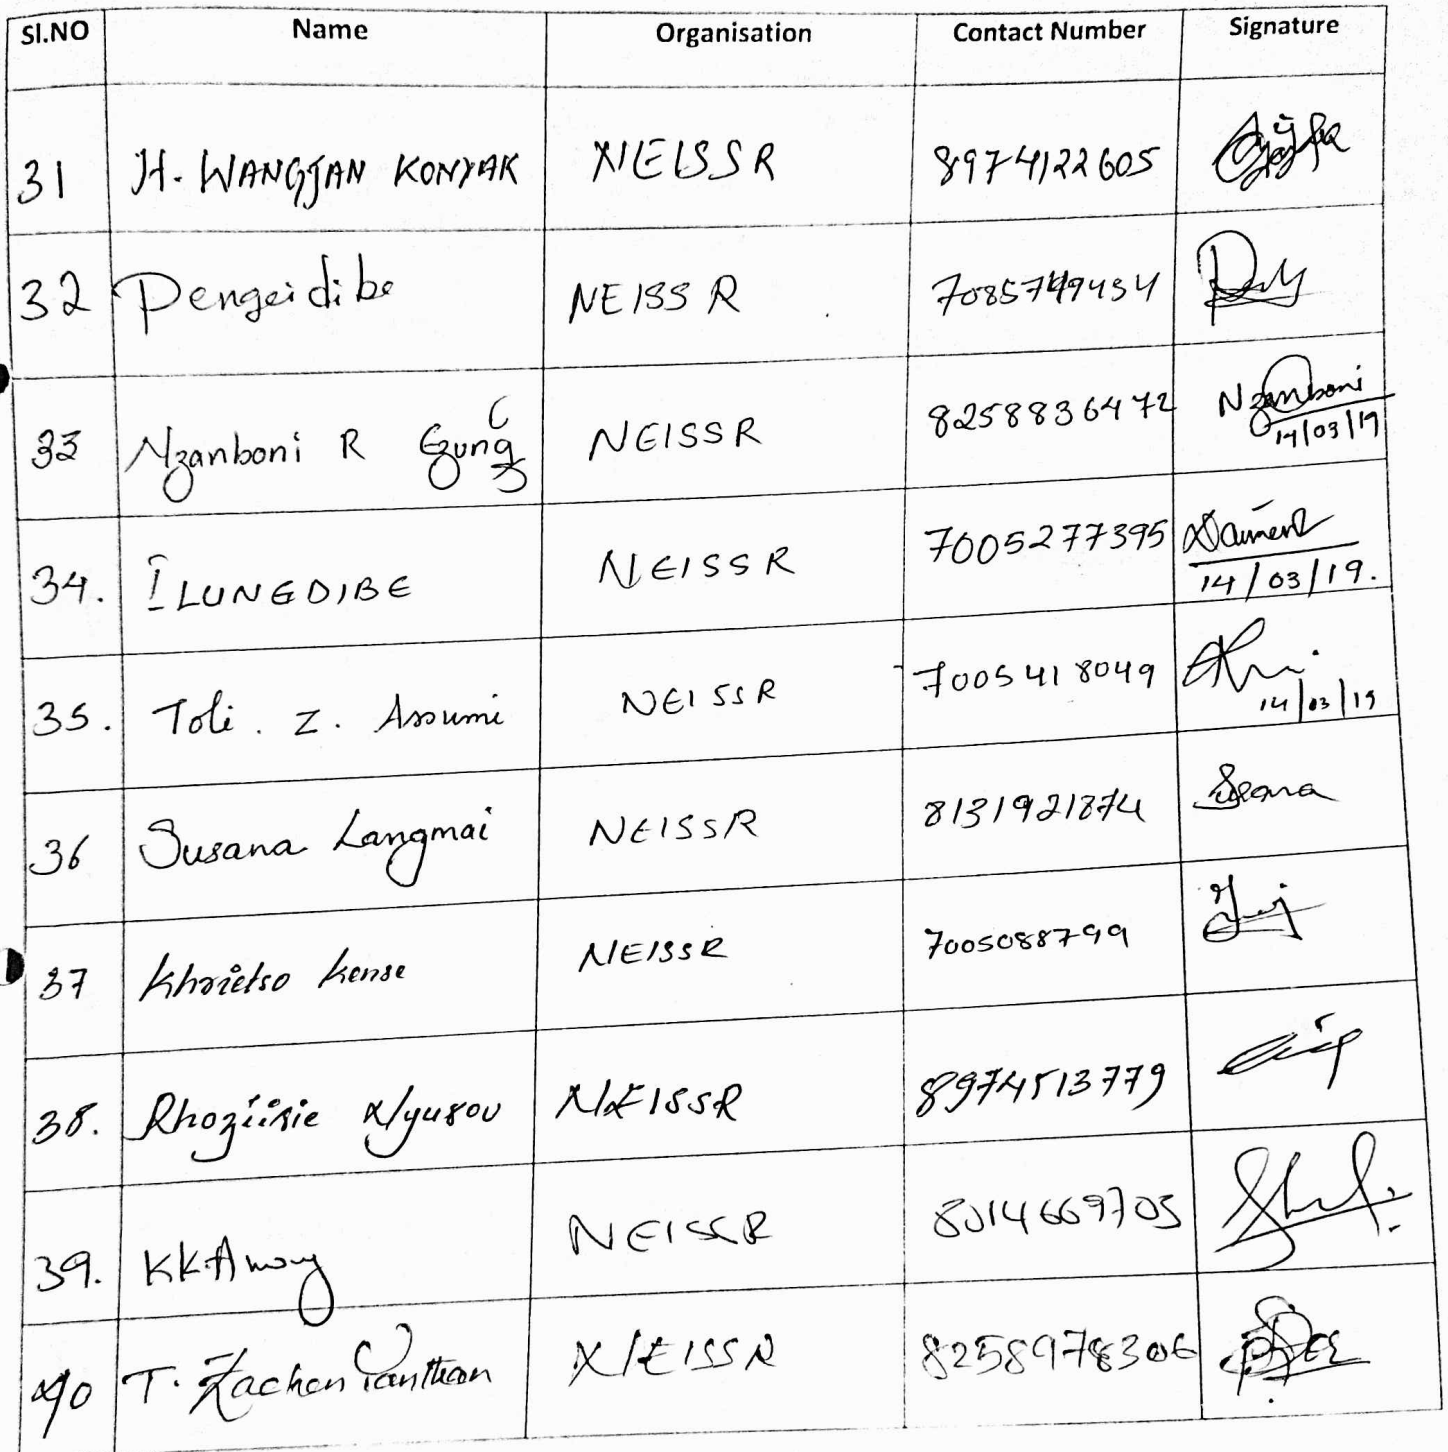 Sl.NO Name Organisation Contact Number Signature
31 H. WANGJAN KONYAK NEISSR 8974122605
32 Pengeidibe NEISSR
33 Nzanboni R Ezung NEISSR 8258836472 Nzanboni
14/03/19
34. ILUNGDIBE NEISSR 7005277395
14/03/19.
35. Toli. Z. Assumi NEISSR 7005418049
14/03/19
36 Susana Langmai NEISSR 8131921874
37 Khrietso Kense NEISSR 7005088799
38. Rhoziisie Nyusou NEISSR 8974513779
39. KK NEISSR 8014669705
40 T. Zachan NEISSR 8258978306